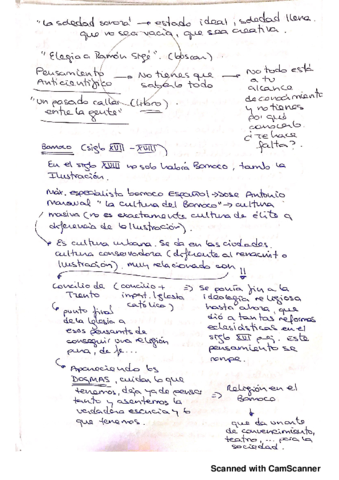 "La soledad sonora" → estado ideal, soledad llena
que no sea vacía, que sea creativa.
"Elegía a Ramón Sijé". (buscar)
Pensamiento Anticientífico → No tienes que saberlo todo → No todo está a tu alcance de conocimiento y no tienes por qué conocerlo ¿Te hace falta?
"Un pasado caller (libro)
entre la gente"
Barroco (siglo XVII - XVIII)
En el siglo XVIII no solo habrá Barroco, tamb la
Ilustración.
Máx. especialista barroco español → Jose Antonio
Maravall "La cultura del Barroco" → cultura
masiva (no es exactamente cultura de élite a
diferencia de la Ilustración).
Es cultura urbana. Se da en las ciudades.
cultura conservadora (diferente al renacimt o
Ilustración). Muy relacionado son
Concilio de Trento (concilio + import. Iglesia católica)
⇒ Se ponía fin a la
ideología religiosa
hasta ahora, que
dió a tantas reformas
eclesiásticas en el
siglo XVI . Este
pensamiento se
rompe.
punto final
de la Iglesia a
esos pensamts de
conseguir una religión
pura, de fe...
Apareciendo los
DOGMAS, cuidan lo que
tenemos, deja ya de pensar
tanto y asentemos la
verdadera esencia y lo
que tenemos.
⇒ Religión en el
Barroco
que da un arte
de convencimiento,
teatro, ... para la
sociedad.
Scanned with CamScanner